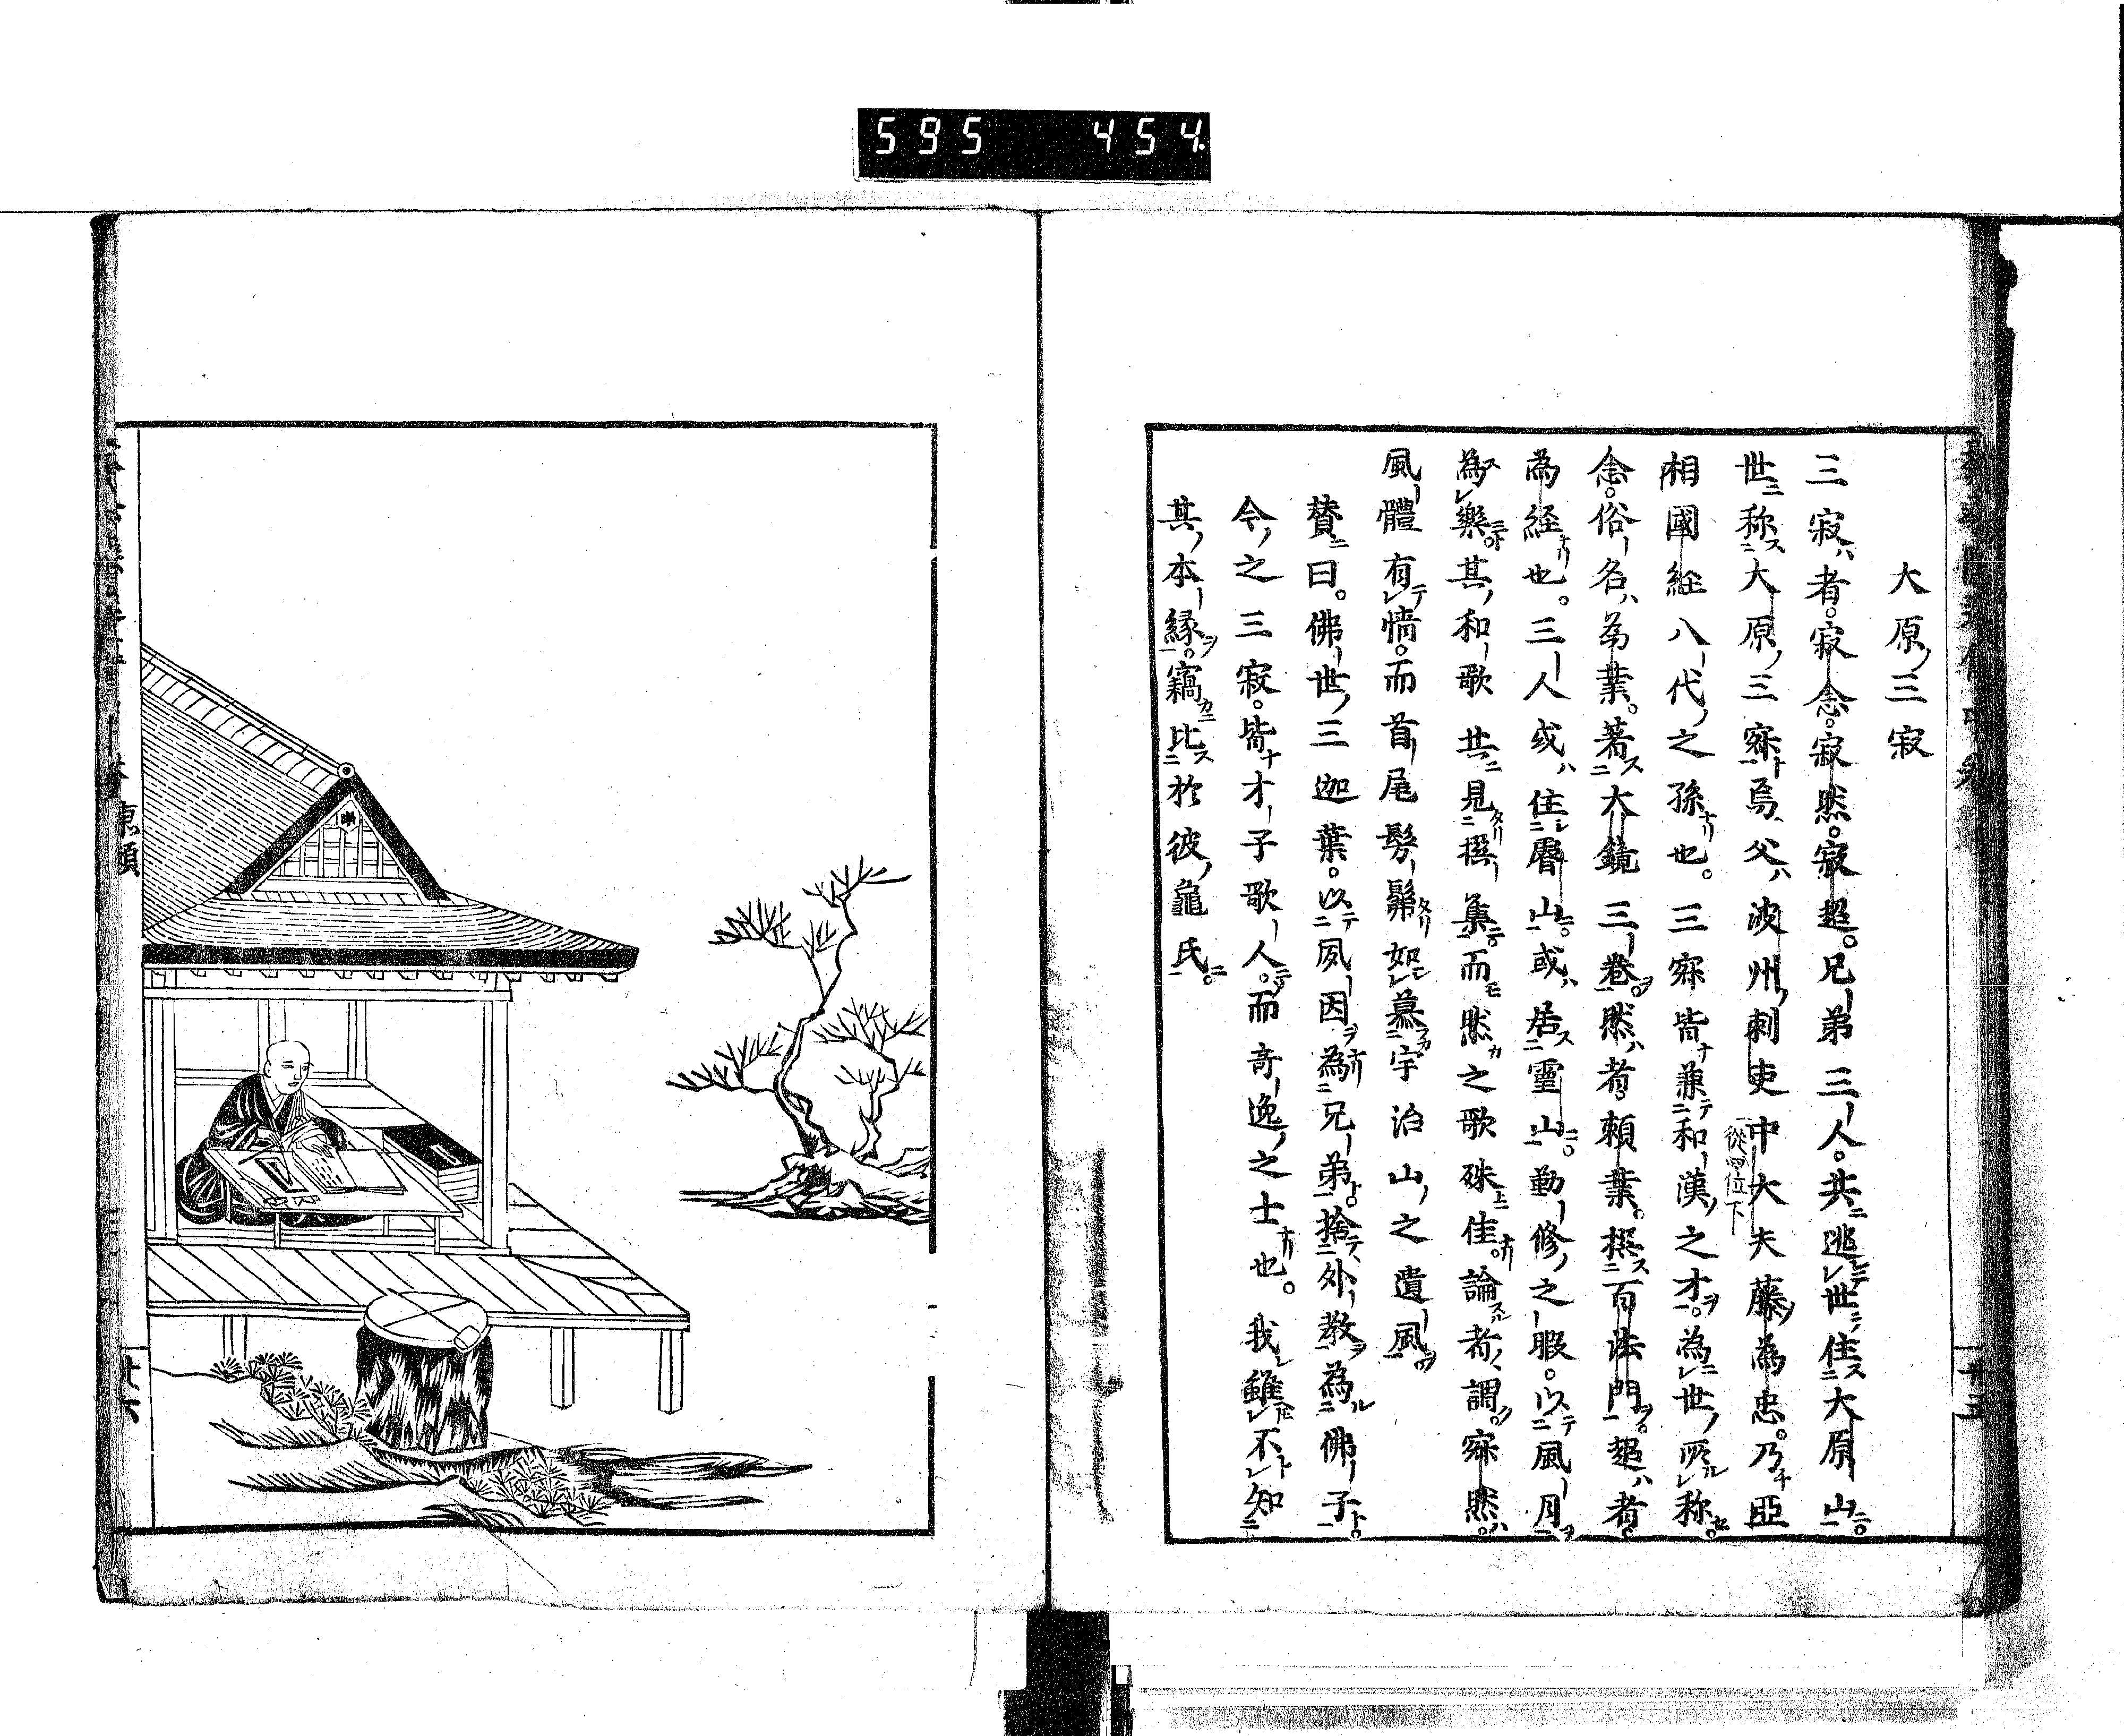 595 454
大原ノ三寂
三寂ハ者。寂念。寂然。寂超。兄弟三人。共ニ逃レテ世ヲ住ス大原山ニ。
世ニ称ス大原ノ三寂ト焉。父ハ波州ノ刺吏中大夫藤ノ為忠。乃チ亞
從四位下
相國経八代ノ之孫ナリ也。三寂皆ナ兼テ和漢ノ之才ヲ。為ニ世ノ所ル称セ。
念。俗名ハ為業。著ス大鏡三巻ヲ。然ハ者。頼業。撰ス百法門ヲ。超ハ者
為経ナリ也。三人或ハ住シ層山ニ。或ハ居ス靈山ニ。勤修ノ之暇。以テ風月ヲ
為ス樂ト。其ノ和歌共ニ見タリ撰集ニ。而モ然カ之歌殊ニ佳ナリ。論スル者ノ。謂ク。寂然ハ。
風體有テ情。而首尾髣髴タリ。如シ慕フカ宇治山ノ之遺風ヲ
賛ニ曰。佛世ノ三迦葉。以テ夙因ヲ為ナリ兄弟ト。捨テ外教ヲ為ル佛子ト。
今ノ之三寂。皆ナ才子歌人ニシテ。而奇逸ノ之士ナリ也。我レ雖𪜈不ト知
其ノ本縁ヲ。竊カニ比ス於彼ノ龜氏ニ。
東頰
十五
廿六